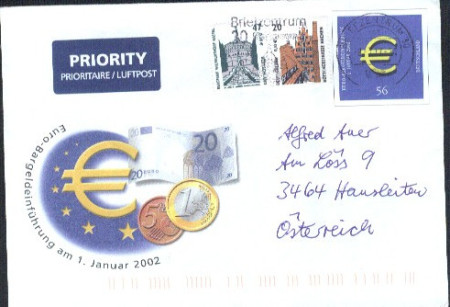 PRIORITY
PRIORITAIRE / LUFTPOST
Briefzentrum
47
20
56
Euro-Bargeldeinführung am 1. Januar 2002
20
20 EURO
5
1
Alfred Auer
Am Löss 9
3464 Hausleiten
Österreich